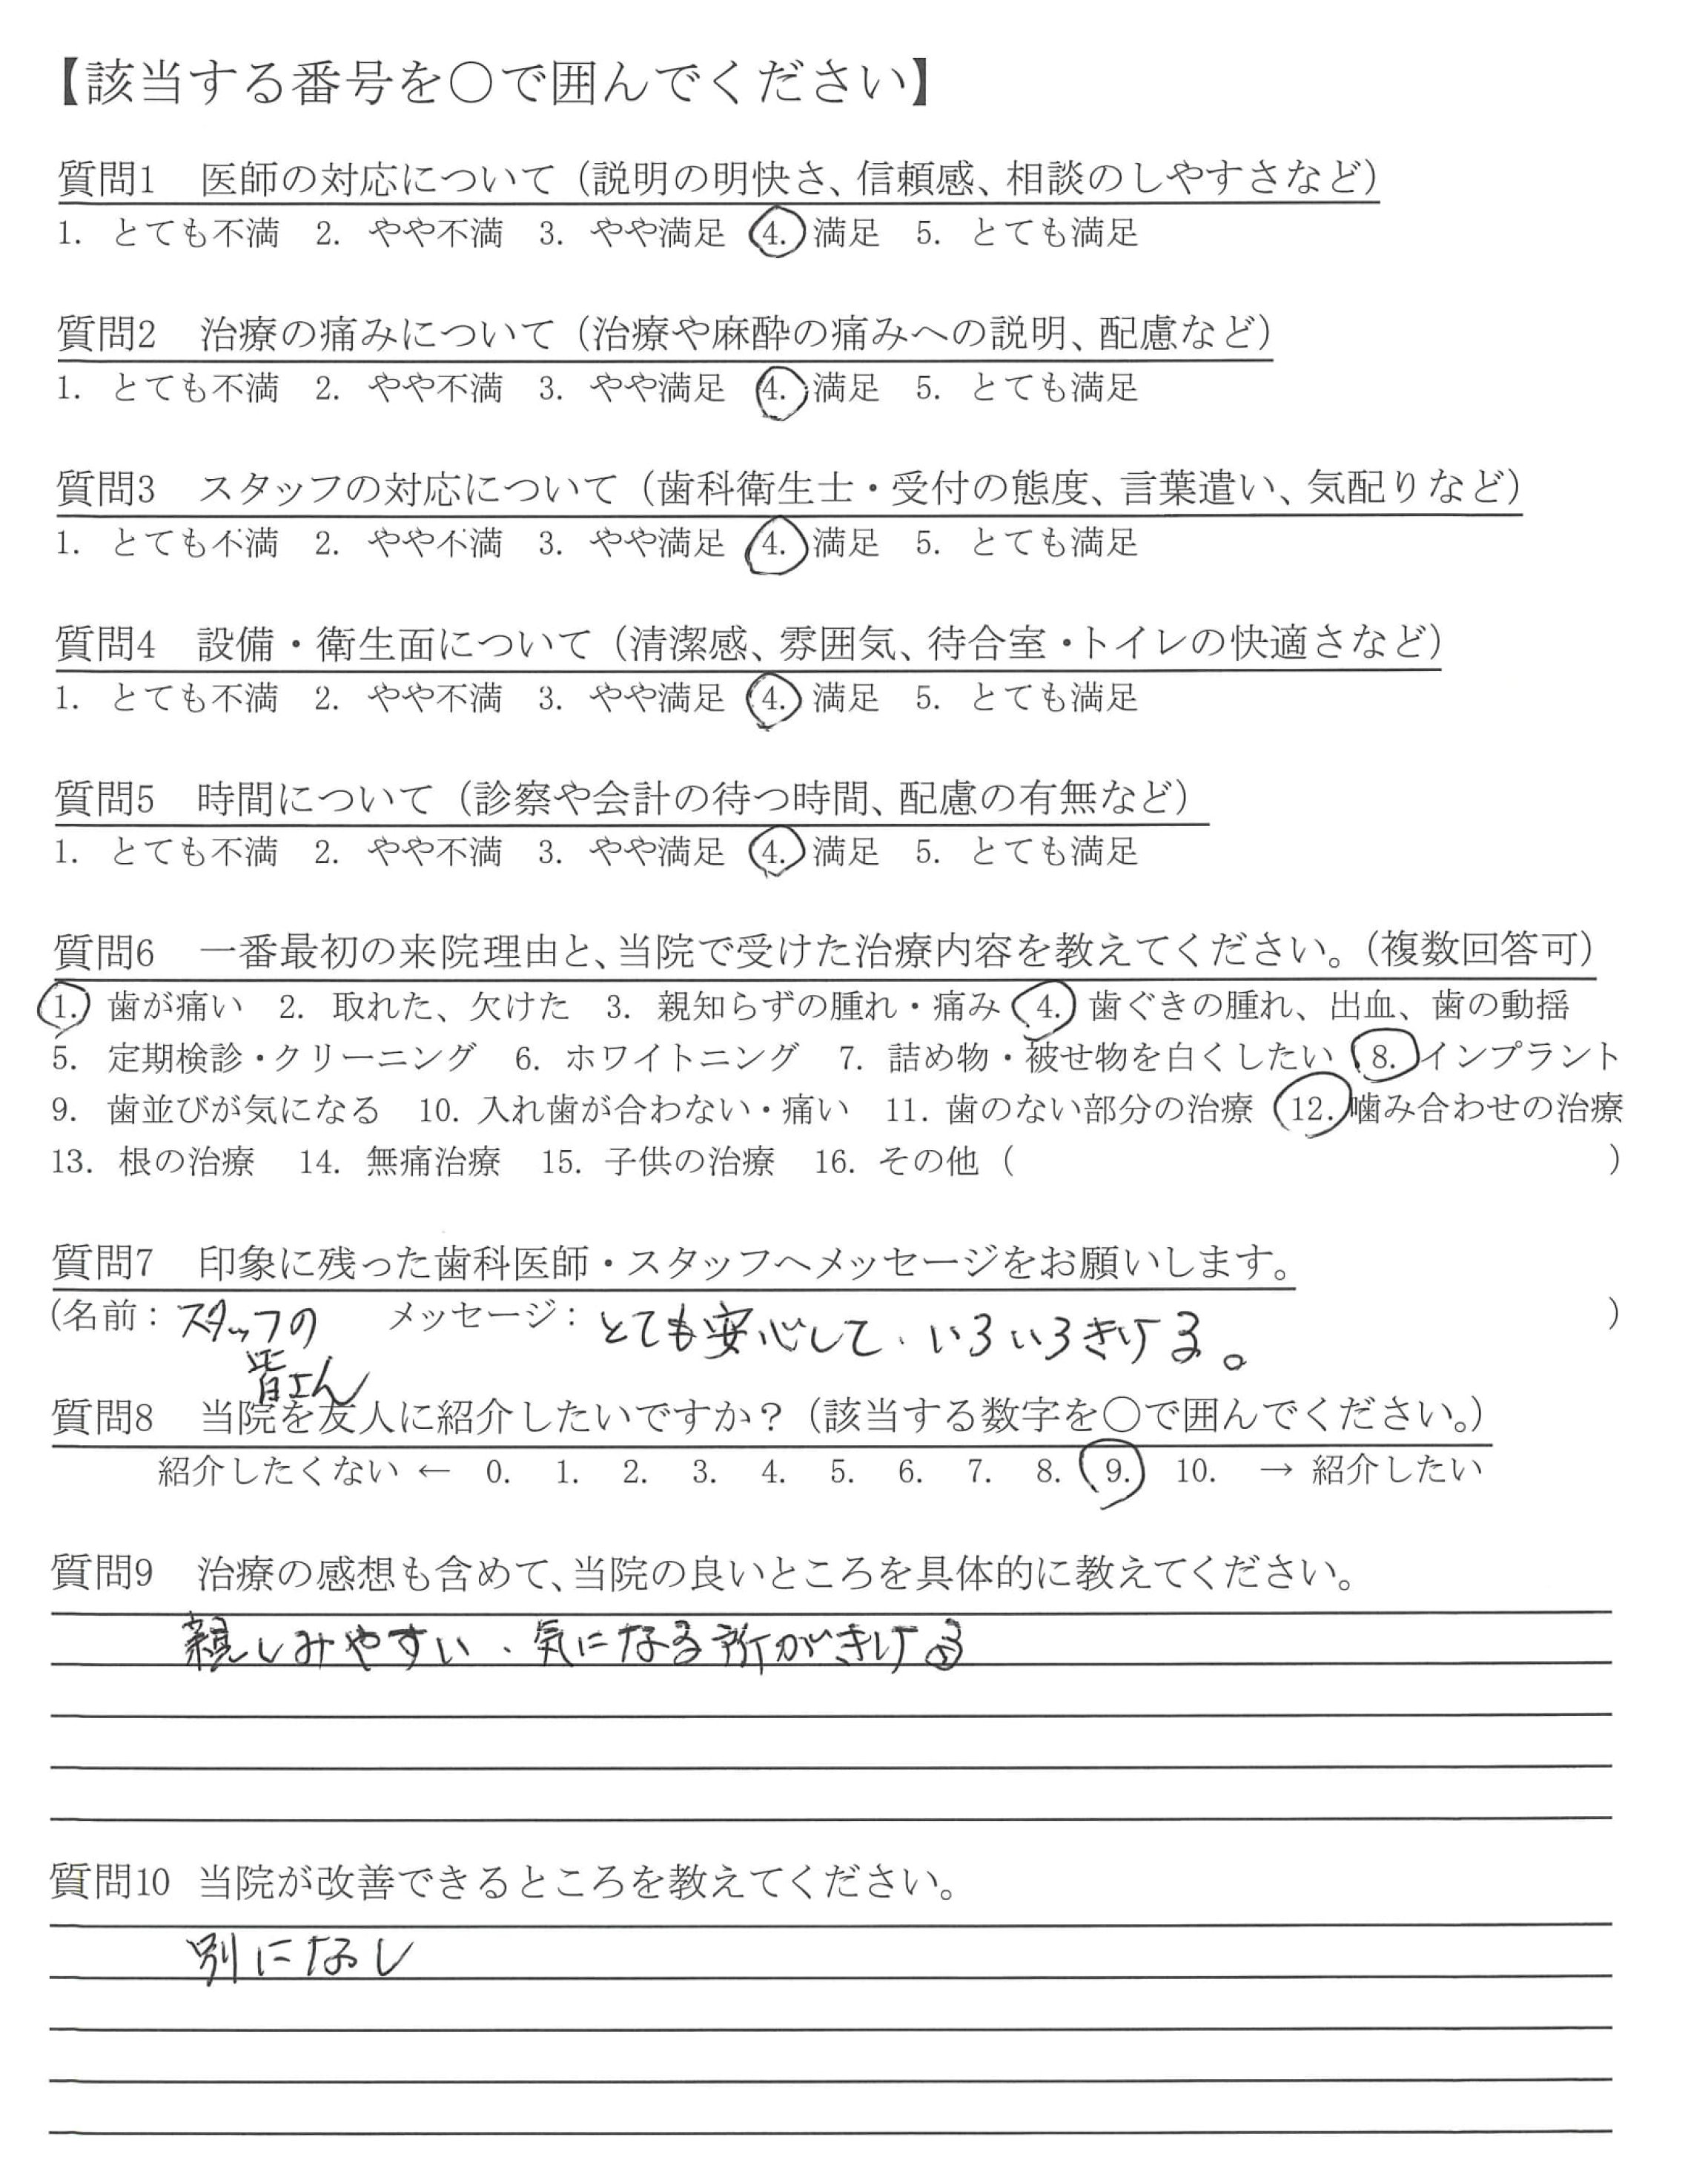 【該当する番号を〇で囲んでください】
質問1　医師の対応について（説明の明快さ、信頼感、相談のしやすさなど）
1. とても不満　2. やや不満　3. やや満足　4. 満足　5. とても満足
質問2　治療の痛みについて（治療や麻酔の痛みへの説明、配慮など）
1. とても不満　2. やや不満　3. やや満足　4. 満足　5. とても満足
質問3　スタッフの対応について（歯科衛生士・受付の態度、言葉遣い、気配りなど）
1. とても不満　2. やや不満　3. やや満足　4. 満足　5. とても満足
質問4　設備・衛生面について（清潔感、雰囲気、待合室・トイレの快適さなど）
1. とても不満　2. やや不満　3. やや満足　4. 満足　5. とても満足
質問5　時間について（診察や会計の待つ時間、配慮の有無など）
1. とても不満　2. やや不満　3. やや満足　4. 満足　5. とても満足
質問6　一番最初の来院理由と、当院で受けた治療内容を教えてください。（複数回答可）
1. 歯が痛い　2. 取れた、欠けた　3. 親知らずの腫れ・痛み　4. 歯ぐきの腫れ、出血、歯の動揺
5. 定期検診・クリーニング　6. ホワイトニング　7. 詰め物・被せ物を白くしたい　8. インプラント
9. 歯並びが気になる　10. 入れ歯が合わない・痛い　11. 歯のない部分の治療　12. 噛み合わせの治療
13. 根の治療　14. 無痛治療　15. 子供の治療　16. その他（　　　）
質問7　印象に残った歯科医師・スタッフへメッセージをお願いします。
（名前：スタッフの　メッセージ：とても安心して、いろいろきける。）
皆さん
質問8　当院を友人に紹介したいですか？（該当する数字を〇で囲んでください。）
紹介したくない ← 0.　1.　2.　3.　4.　5.　6.　7.　8.　9.　10.　→ 紹介したい
質問9　治療の感想も含めて、当院の良いところを具体的に教えてください。
親しみやすい、気になる所がきける
質問10　当院が改善できるところを教えてください。
別になし